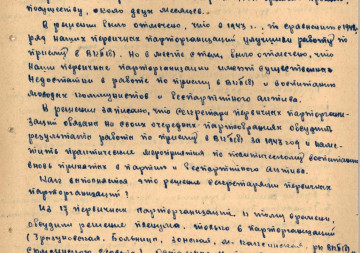 полугодству, около двух месяцев.
В решении было отмечено, что в 1943 г., по сравнению с 1942,
ряд наших первичных парторганизаций улучшили работу по
приему в ВКП(б). Но в месте с тем, было отмечено, что
наши первичные парторганизации имеют существенные
недостатки в работе по приему в ВКП(б) и воспитании
молодых коммунистов и беспартийного актива.
В решении записано, что секретари первичных парторгани-
заций обязаны на своих очередных партсобраниях обсудить
результаты работы по приему в ВКП(б) за 1943 год и наме-
тить практические мероприятия по политическому воспитанию
вновь принятых в партию и беспартийного актива.
Как выполняется это решение секретарями первичных
парторганизаций?
Из 17 первичных парторганизаций к тому времени,
обсудили решение пленума только в парторганизаций
Больница, РК ВКП(б)